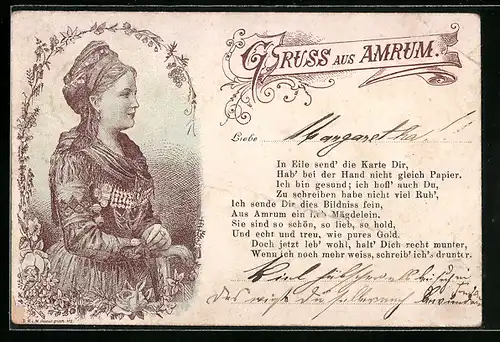 GRUSS AUS AMRUM.
Liebe Margaretha!
In Eile send' die Karte Dir,
Hab' bei der Hand nicht gleich Papier.
Ich bin gesund; ich hoff' auch Du,
Zu schreiben habe nicht viel Ruh',
Ich sende Dir dies Bildniss fein,
Aus Amrum ein Mägdelein.
Sie sind so schön, so lieb, so hold,
Und echt und treu, wie pures Gold.
Doch jetzt leb' wohl, halt' Dich recht munter,
Wenn ich noch mehr weiss, schreib' ich's drunter.
Viel
das Du